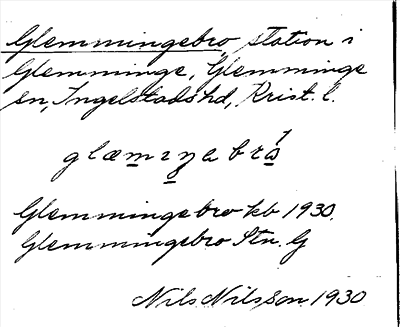 Glemmingebro, station i
Glemminge, Glemminge
sn, Ingelstads hd, Krist. l.
Glemmingebro kb 1930.
Glemmingebro Stn. G
Nils Nilsson 1930